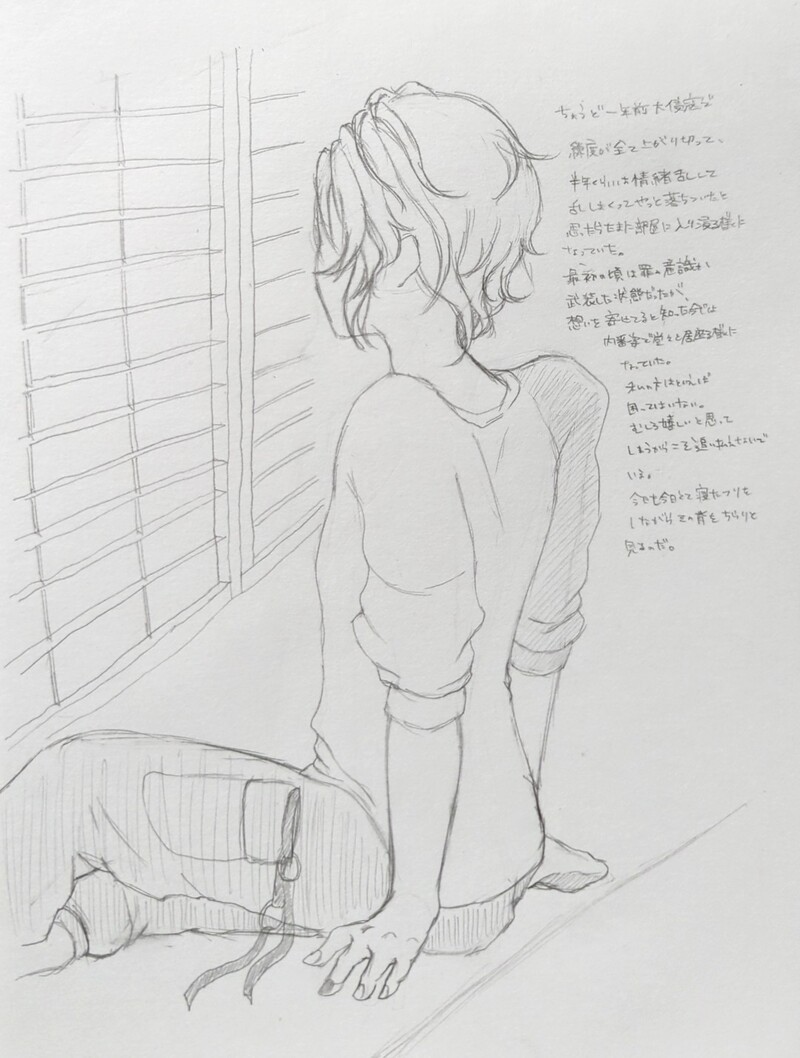 ちょうど一年前大侵寇で
練度が全て上がり切って、
半年くらいは情緒乱して
乱しまくってやっと落ちついたと
思ったらたまに部屋に入り浸る様に
なっていた。
最初の頃は罪の意識か
武装した状態だったが、
想いを寄せてると知った今では
内番姿で堂々と居座る様に
なっていた。
私の方はといえば
困ってはいない。
むしろ嬉しいと思って
しまうからこそ追いねんせないで
いる。
今でも今日とて寝たフリを
しながらその背をちらりと
見るのだ。